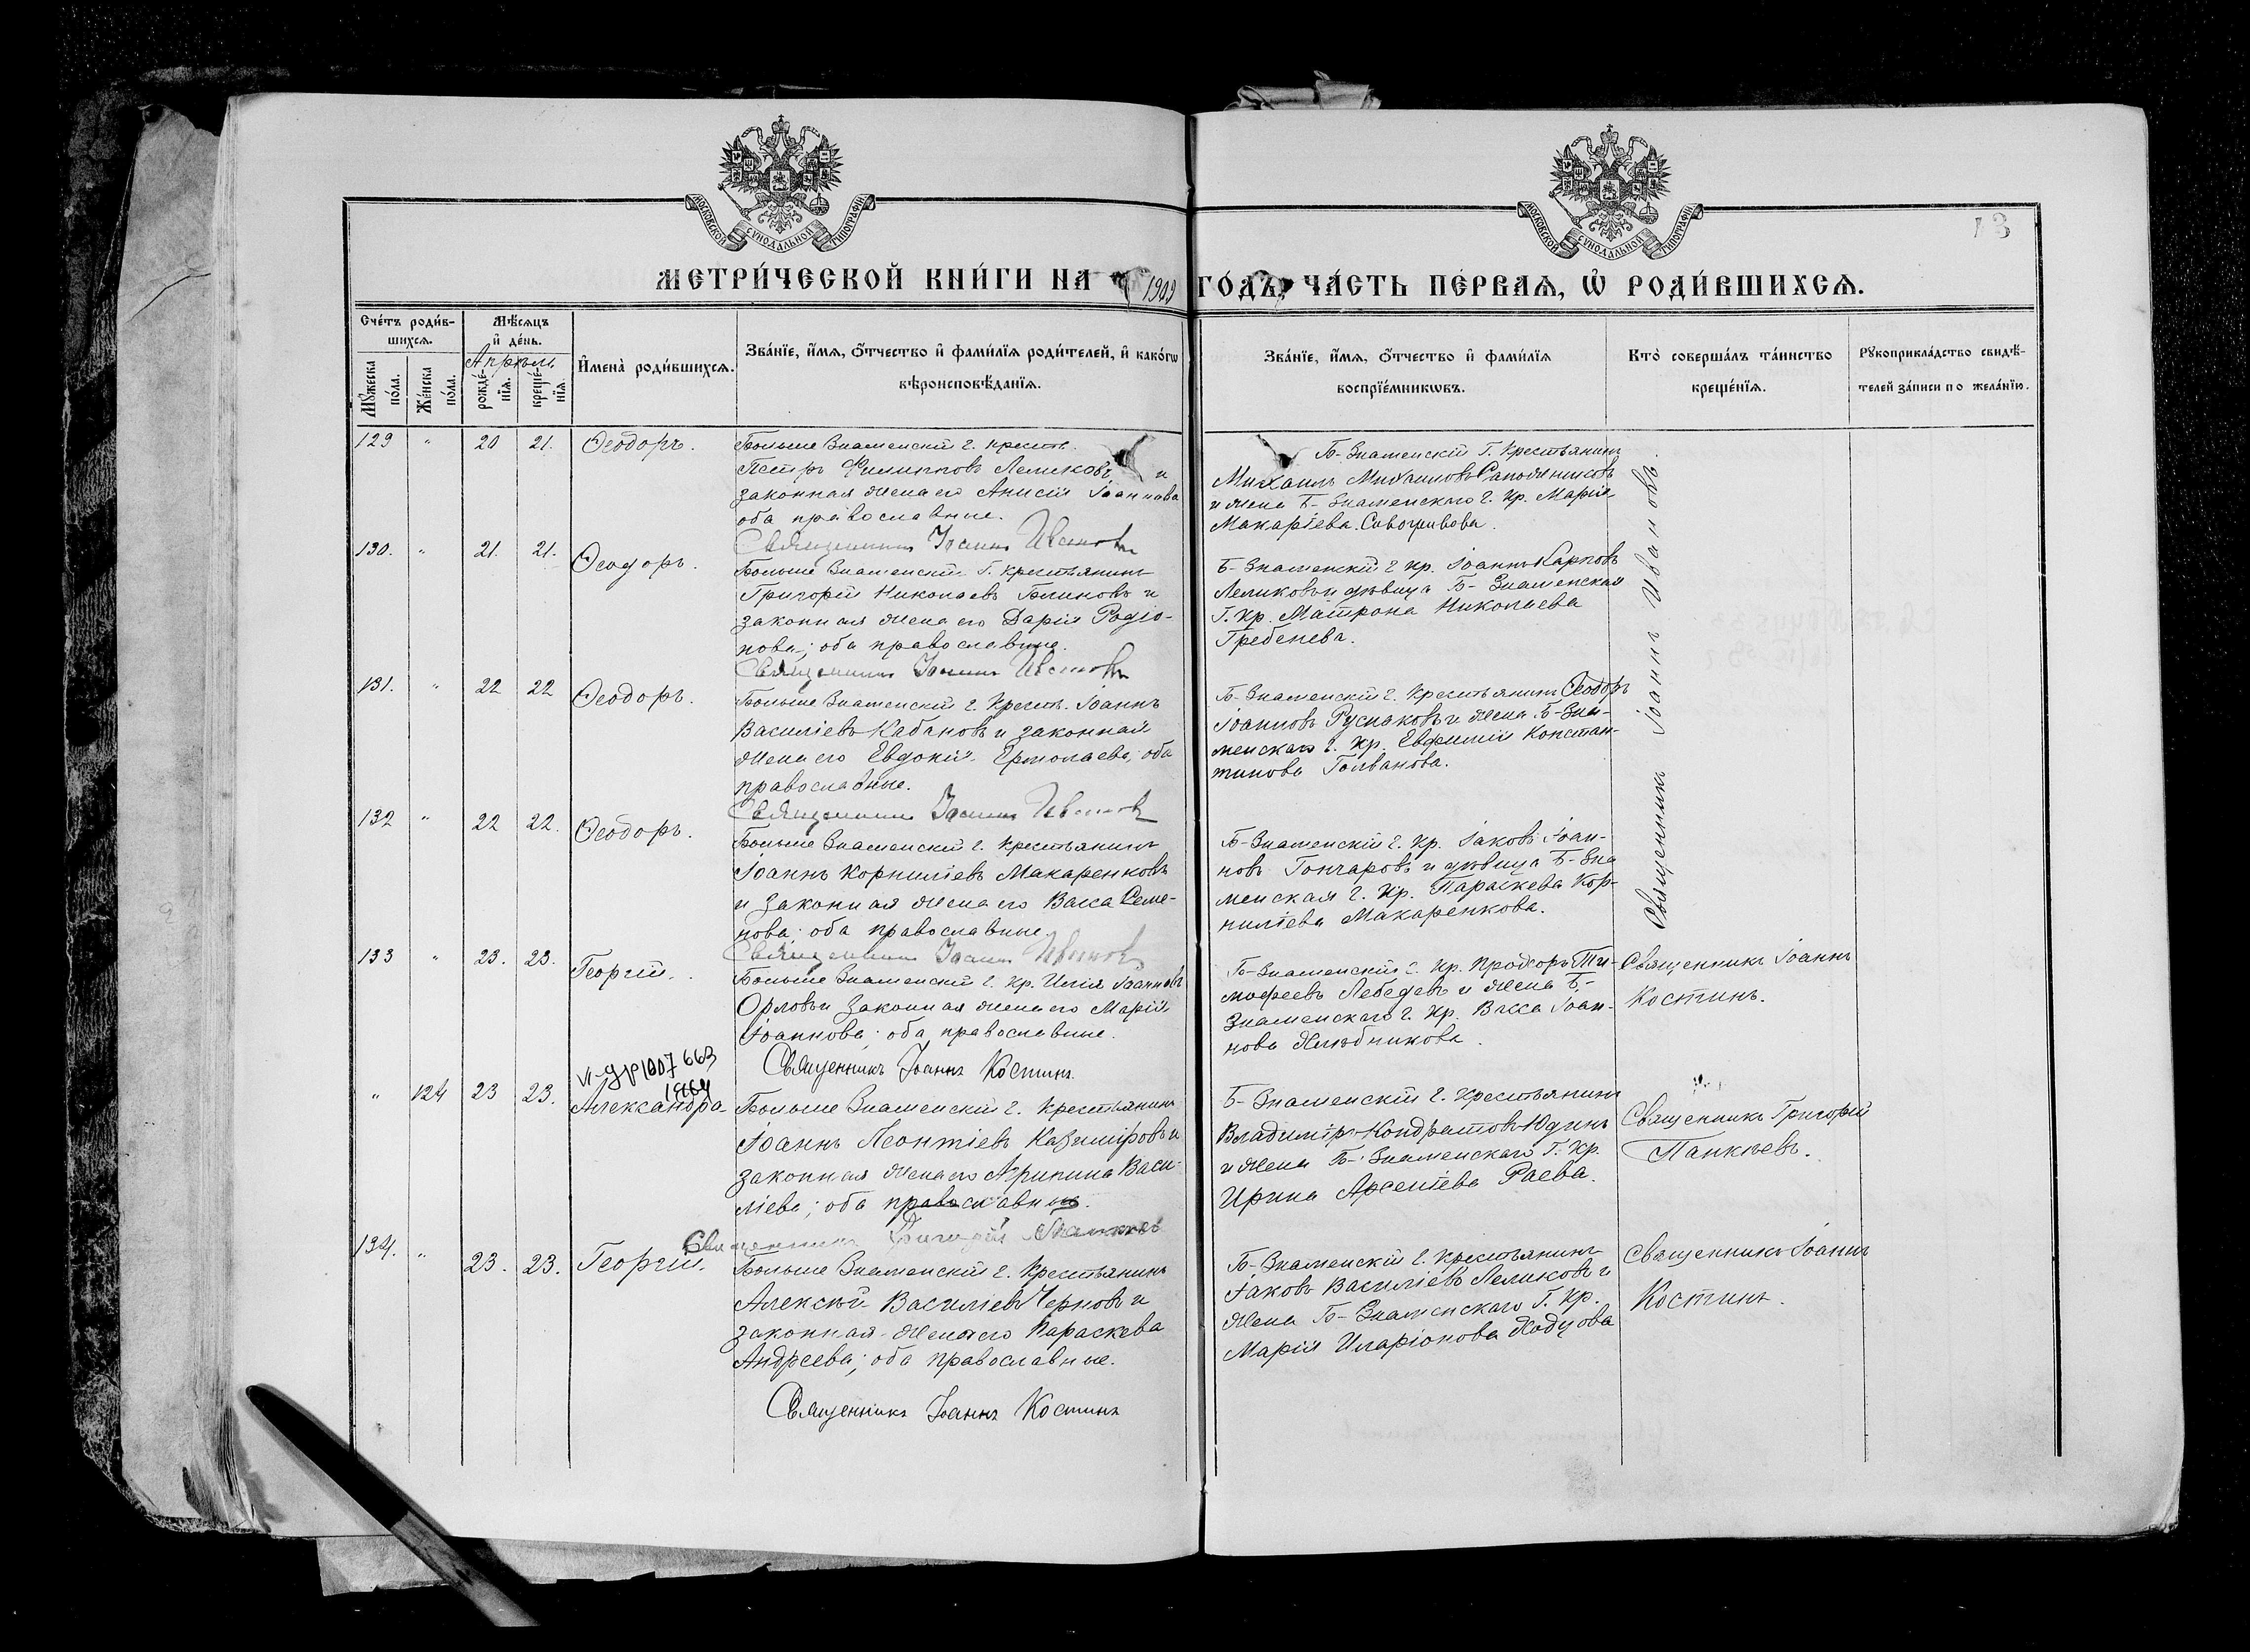 МОСКОВСКОЙ СѴНОДАЛЬНОЙ ТИПОГРАФІИ
МОСКОВСКОЙ СѴНОДАЛЬНОЙ ТИПОГРАФІИ
13
МЕТРИ́ЧЕСКОЙ КНИ́ГИ НА 1909 ГО́ДЪ, ЧА́СТЬ ПЕ́РВАѦ, Ѡ҆ РОДИ́ВШИХСѦ.
Сче́тъ роди́в-
шихсѧ.
Мꙋ́жеска по́ла.
Же́нска по́ла.
Мѣ́сѧцъ
и҆ де́нь.
Апрѣль
рожде́-нїѧ.
креще́-нїѧ.
И҆мена̀ роди́вшихсѧ.
Зва́нїе, и҆́мѧ, ѻ҆́тчество и҆ фами́лїѧ роди́телей, и҆ како́гѡ
вѣроисповѣ́данїѧ.
Зва́нїе, и҆́мѧ, ѻ҆́тчество и҆ фами́лїѧ
воспрїе́мникѡвъ.
Кто̀ соверша́лъ та́инство
креще́нїѧ.
Рꙋкоприкла́дство свидѣ́-
телей за́писи по жела́нїю.
129 " 20 21. Ѳеодоръ.
Больше Знаменскій г. крестн.
Петръ Филипповъ Леликовъ и
законная жена его Анисія Іоаннова
оба православные.
Священникъ Іоаннъ Ивановъ
Б-Знаменскій Г. Крестьянинъ
Михаилъ Михаиловъ Сапожниковъ
и жена Б-Знаменскаго г. кр. Марія
Макаріева Сивогривова.
Священникъ Іоаннъ Ивановъ.
130. " 21. 21. Ѳеодоръ.
Больше Знаменскій Г. крестьянинъ
Григорій Николаевъ Блиновъ и
законная жена его Дарія Родіо-
нова; оба православные.
Священникъ Іоаннъ Ивановъ
Б-Знаменскій г кр. Іоаннъ Карповъ
Леликовъ и дѣвица Б-Знаменская
Г. Кр. Матрона Николаева
Гребенева.
131. " 22 22 Ѳеодоръ.
Больше Знаменскій г. Крестн. Іоаннъ
Василіевъ Кабановъ и законная
жена его Евдокія Ермолаева; оба
православные.
Священникъ Іоаннъ Ивановъ
Б-Знаменскій г. Крестьянинъ Ѳеодоръ
Іоанновъ Русаковъ и жена Б-Зна-
менскаго г. кр. Евфимія Констан-
тинова Голванова.
132 " 22 22. Ѳеодоръ.
Больше Знаменскій г. крестьянинъ
Іоаннъ Корниліевъ Макаренковъ
и законная жена его Васса Семе-
нова; оба православные.
Священникъ Іоаннъ Ивановъ
Б-Знаменскій г. кр. Іаковъ Іоан-
новъ Гончаровъ и дѣвица Б-Зна
менская г. Кр. Параскева Кор-
ниліева Макаренкова.
133 " 23. 23. Георгій.
Больше Знаменскій г. кр. Илія Іоанновъ
Орловъ и законная жена его Марія
Іоаннова; оба православные.
Священникъ Іоаннъ Костинъ.
Б-Знаменскій г. кр. Прохоръ Ти-
мофеевъ Лебедевъ и жена Б-
Знаменскаго г. кр. Васса Іоан-
нова Хлѣбникова.
Священникъ Іоаннъ
Костинъ.
" 124 23 23. Александра
Больше Знаменскій г. Крестьянинъ
Іоаннъ Леонтіевъ Казиміровъ и
законная жена его Агрипина Васи-
ліева; оба православны.
Священникъ Григорій Панкѣевъ
Б-Знаменскій г. крестьянинъ
Владиміръ Кондратовъ Юдинъ
и жена Б-Знаменскаго Г. Кр.
Ирина Арсеніева Раева.
Священникъ Григорій
Панкѣевъ.
134. " 23. 23. Георгій.
Больше Знаменскій г. Крестьянинъ
Алексѣй Василіевъ Черновъ и
законная жена его Параскева
Андреева; оба православные.
Священникъ Іоаннъ Костинъ
Б-Знаменскій г. Крестьянинъ
Іаковъ Василіевъ Леликовъ и
жена Б-Знаменскаго Г. Кр.
Марія Иларіонова
Священникъ Іоаннъ
Костинъ.